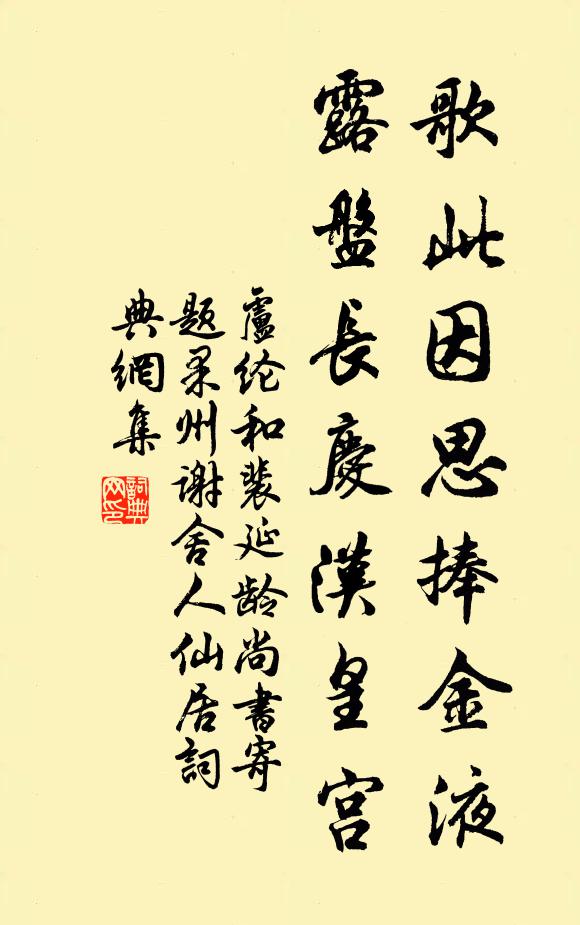 歌此因思捧金液
露盤長慶漢皇宮
盧纶和裴延龄尚書寄
题果州谢舍人仙居詞
典網集
詞典
网印